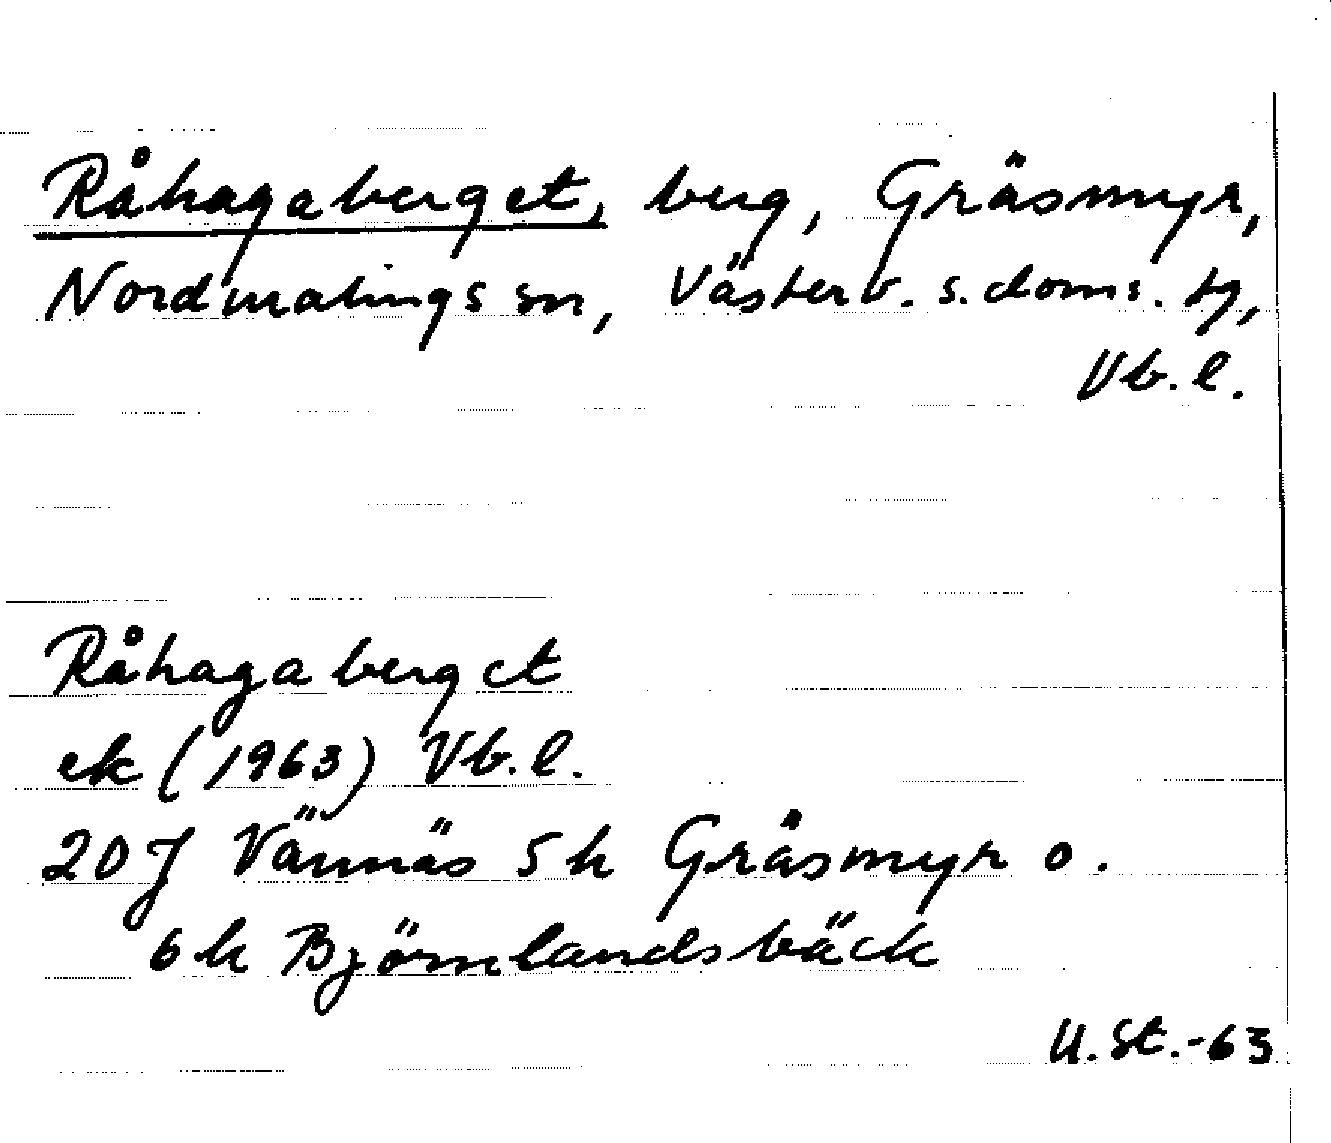 Råhagaberget, berg, Gräsmyr,
Nordmalings sn, Västerb. s. doms. tg,
Vb. l.
Råhagaberget
ek (1963) Vb. l.
20J Vännäs 5h Gräsmyr o.
6h Björnlandsbäck
U. St. -63